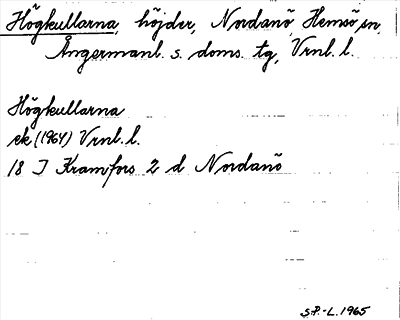 Högkullarna, höjder, Nordanö, Hemsö sn,
Ångermanl. s. doms. tg, Vrnl. l.
Högkullarna
ek (1964) Vrnl. l.
18 I Kramfors 2 d Nordanö
S.P.-L. 1965